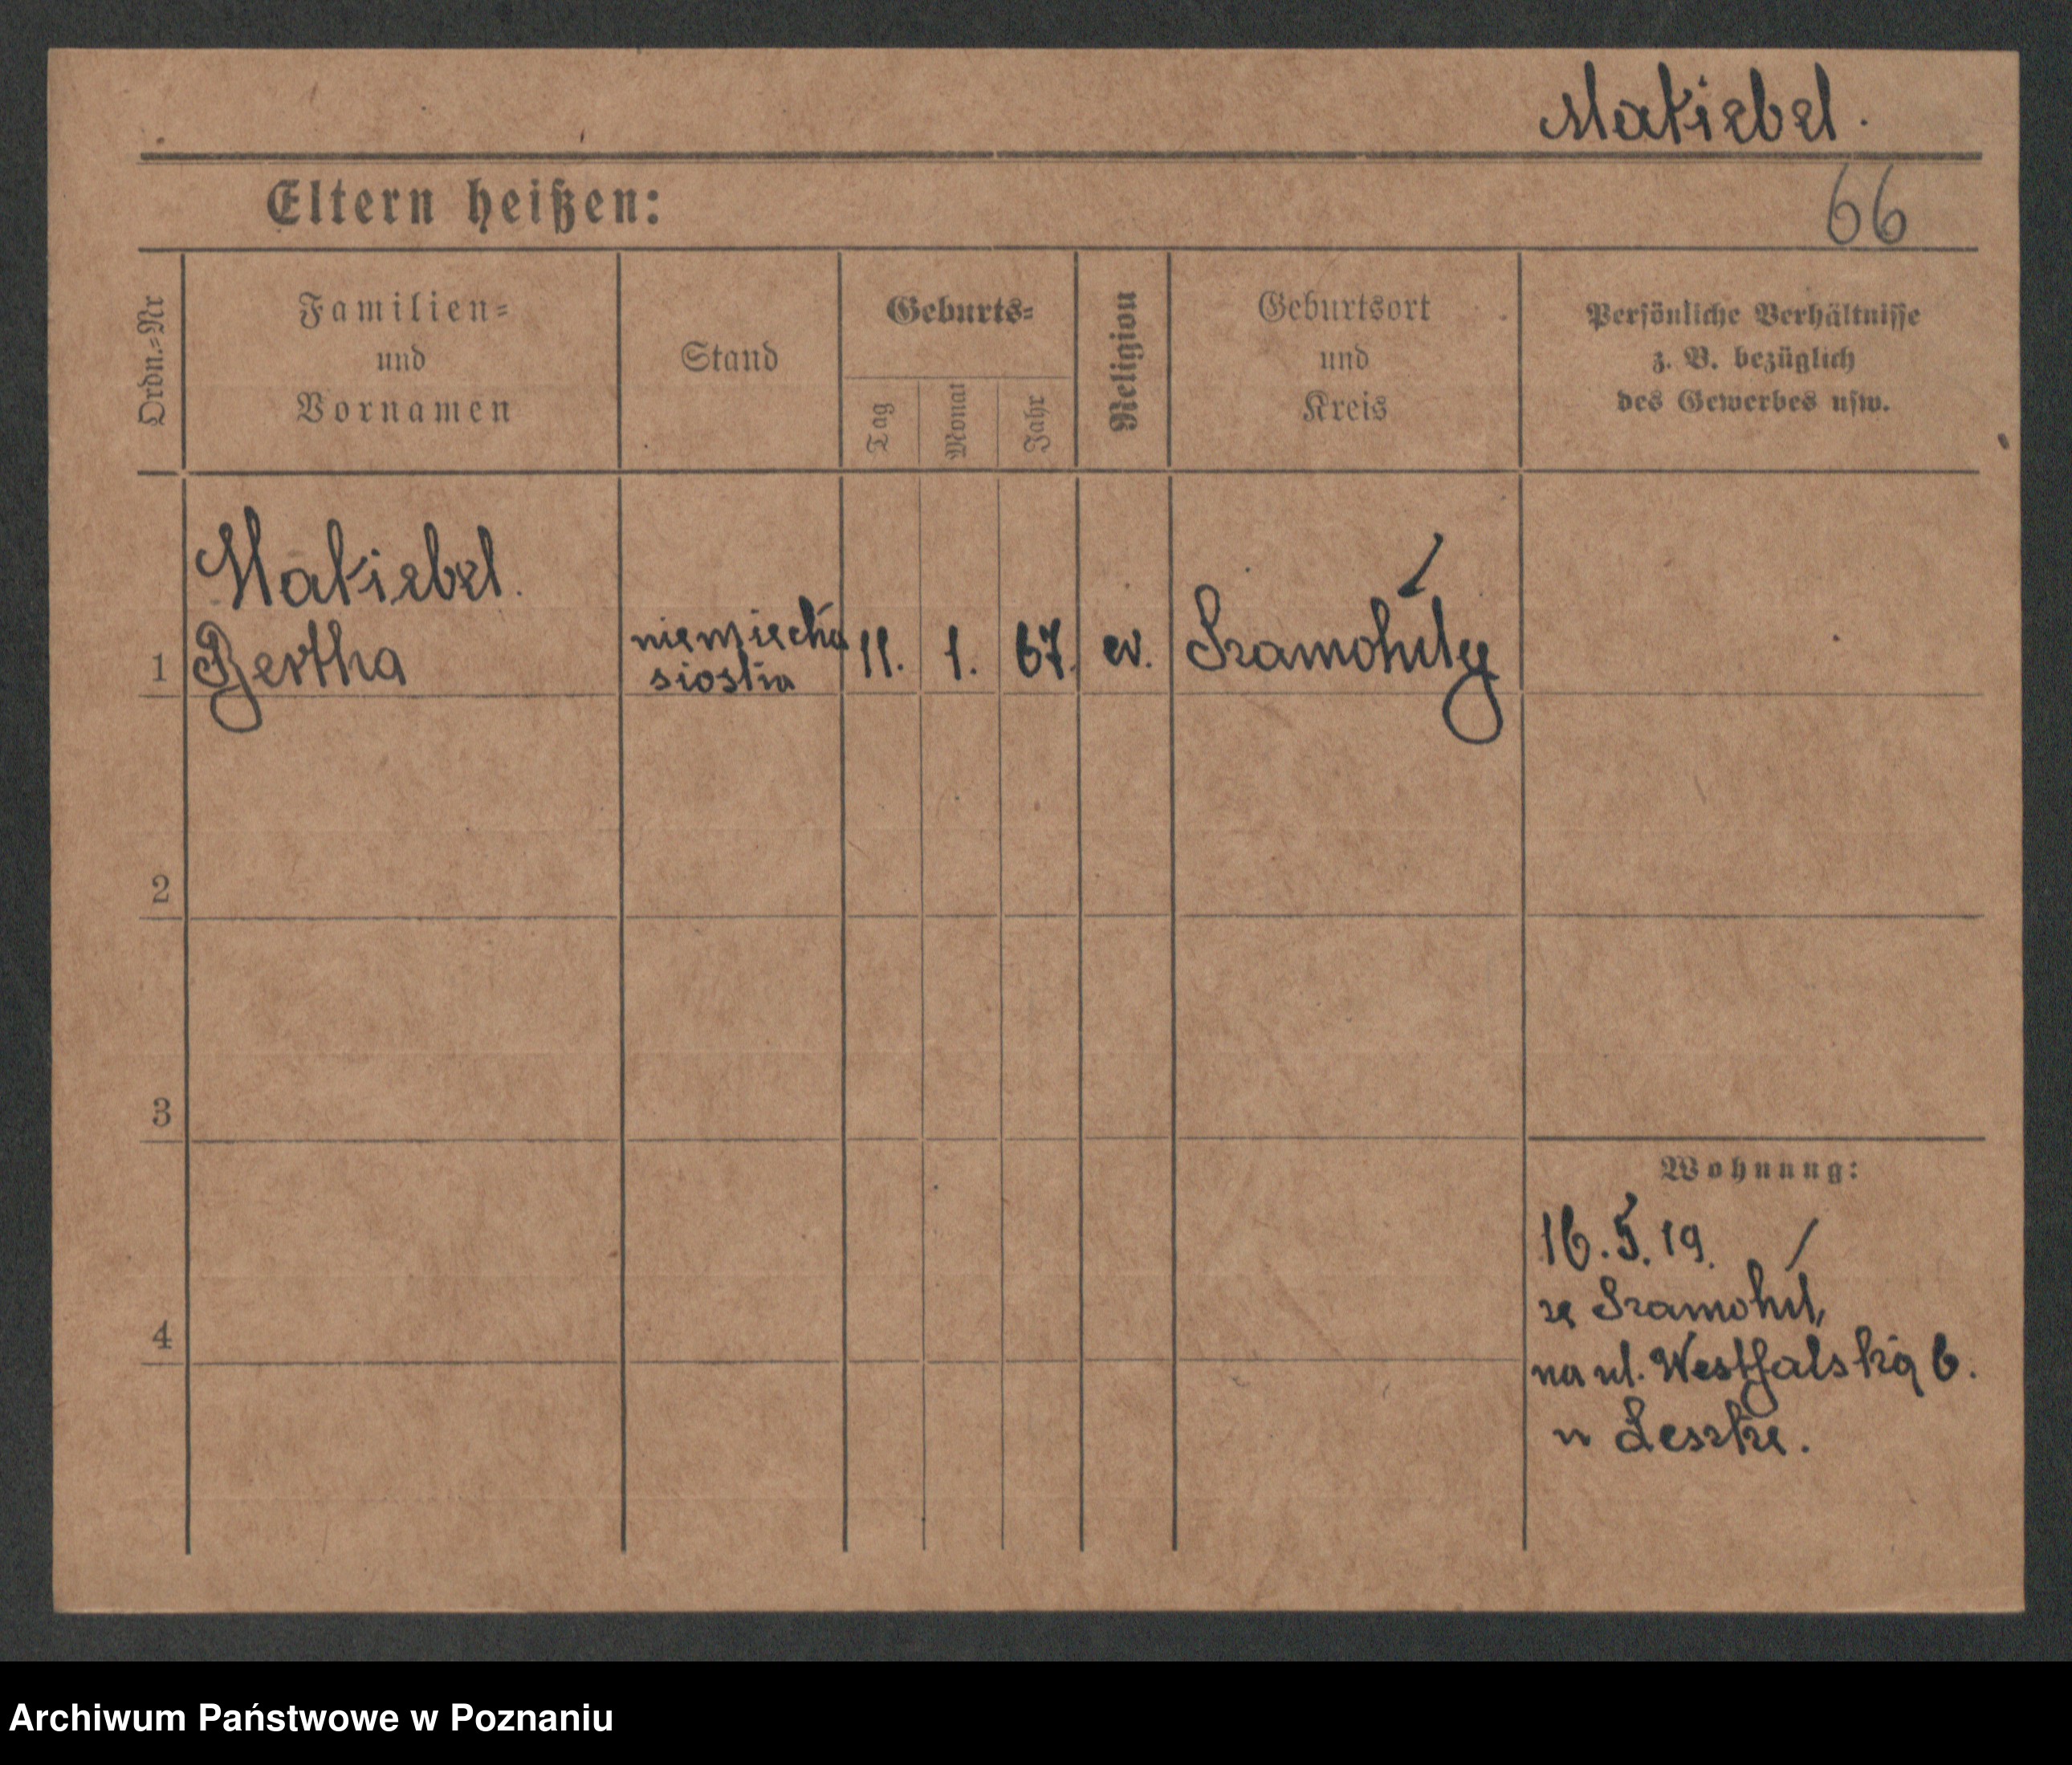 Makiebel.
Eltern heißen:
66
Ordn.=Nr
Familien=
und
Vornamen
Stand
Geburts=
Tag
Monat
Jahr
Religion
Geburtsort
und
Kreis
Persönliche Verhältnisse
z. B. bezüglich
des Gewerbes usw.
Makiebel.
1 Bertha niemiecka siostra 11. 1. 67. ev. Szamotuły
2
3
Wohnung:
16.5.19.
ze Szamotuł,
4
na ul. Westfalską 6.
u Leszke.
Archiwum Państwowe w Poznaniu